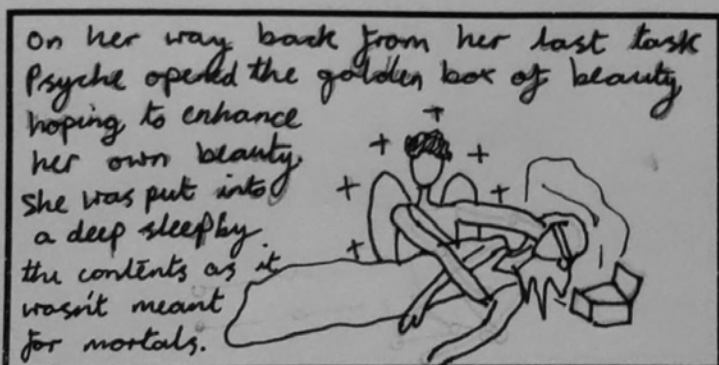 on her way back from her last task
Psyche opened the golden box of beauty
hoping to enhance
her own beauty.
She was put into
a deep sleep by
the contents as it
wasn't meant
for mortals.